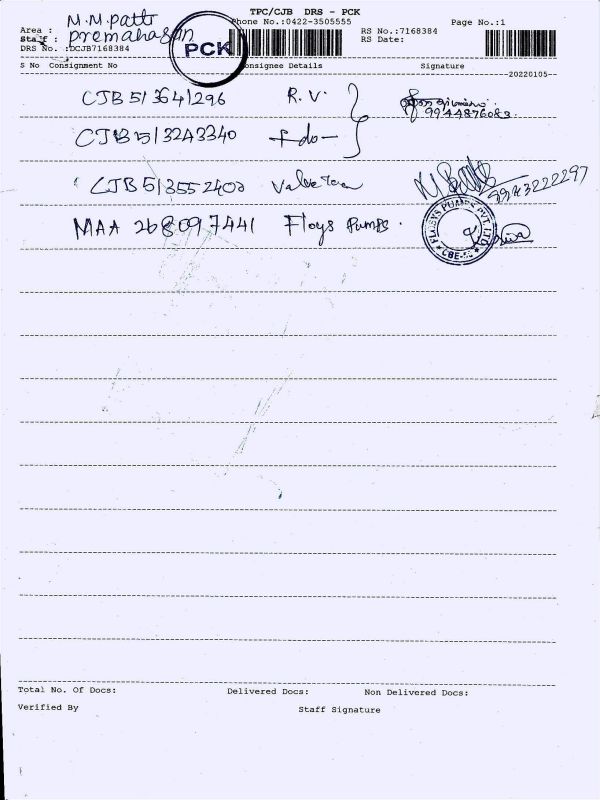 TPC/CJB DRS - PCK
M.M.Patti
Area :
Phone No.:0422-3505555
Page No.:1
RS No.:7168384
Staff :
PCK
RS Date:
DRS No. :DCJB7168384
S No Consignment No
Consignee Details
Signature
--20220105--
CJB 513641296 R.V.
9944876083
CJB 513243340 -do-
CJB 513552400
9943222297
MAA 268097441 Floys Pumps.
PUMPS PVT. LTD
CBE-
Total No. Of Docs:
Delivered Docs:
Non Delivered Docs:
Verified By
Staff Signature